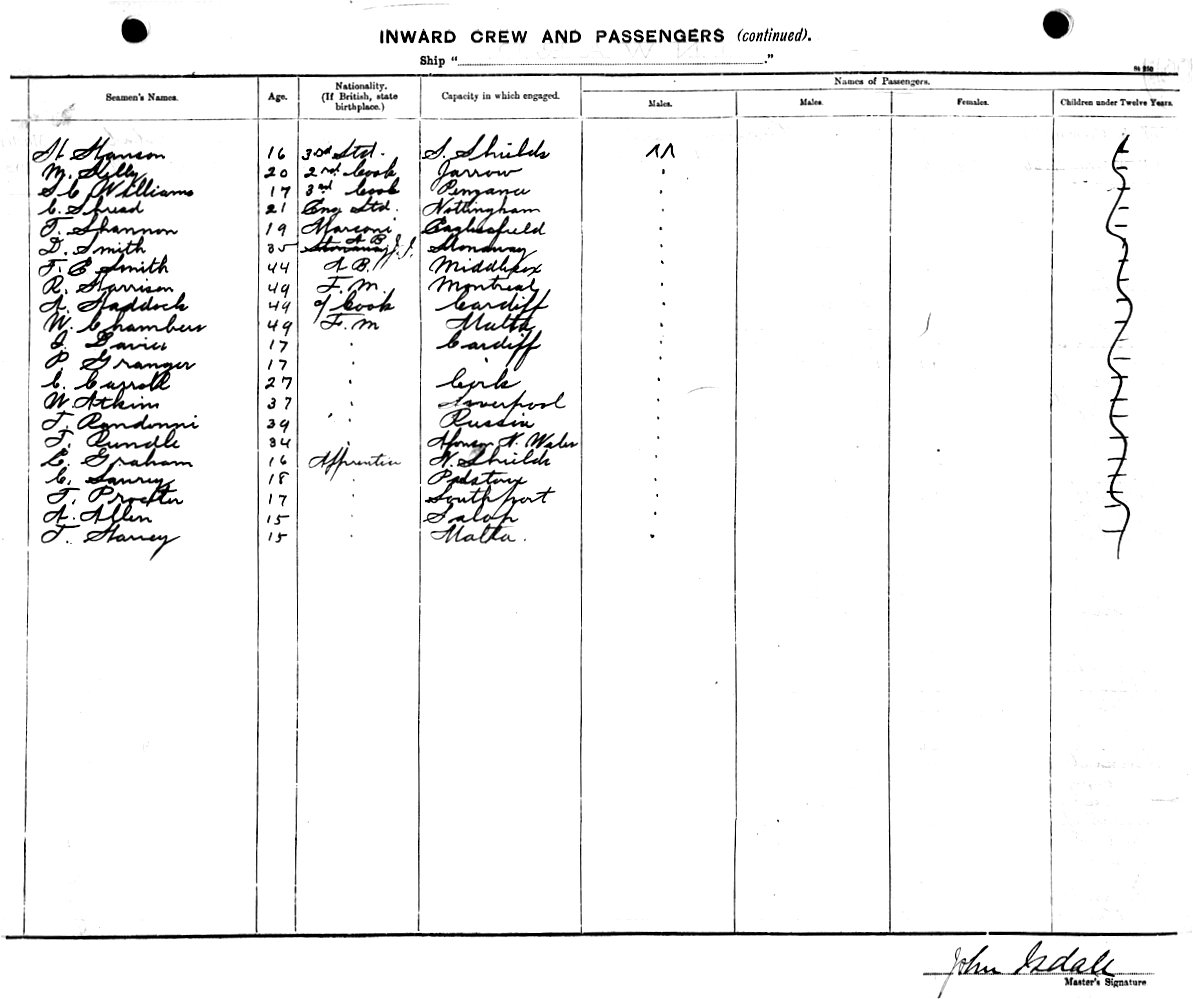 INWARD CREW AND PASSENGERS (continued).
Ship " "
Names of Passengers.
Seamen's Names. Age. Nationality. (If British, state birthplace.) Capacity in which engaged. Males. Males. Females. Children under Twelve Years.
H Hanson 16 3rd Std. S. Shields
M. Kelly 20 2nd Cook Jarrow "
S C Williams 17 3rd Cook Penzance "
C. Shread 21 Eng Std. Nottingham "
T. Shannon 19 Marconi Eaglesfield "
D. Smith 35 A B. J.I. Stonaway "
F. C Smith 44 A B. Middlesex "
R. Harrison 49 F. M. Montreal "
A. Haddock 49 Cook Cardiff "
W. Chambers 49 F. M Malta "
J. Davies 17 " Cardiff "
P. Granger 17 " " "
C. Carroll 27 " Cork "
W Atkins 37 " Liverpool "
T. Randonni 39 " Russia "
T. Rundle 34 " N. Wales "
E. Graham 16 Apprentice N. Shields "
C. 18 " Padstow "
T. Procter 17 " Southport "
A. Allen 15 " Salop "
T. Harvey 15 " Malta. "
John Isdale
Master's Signature